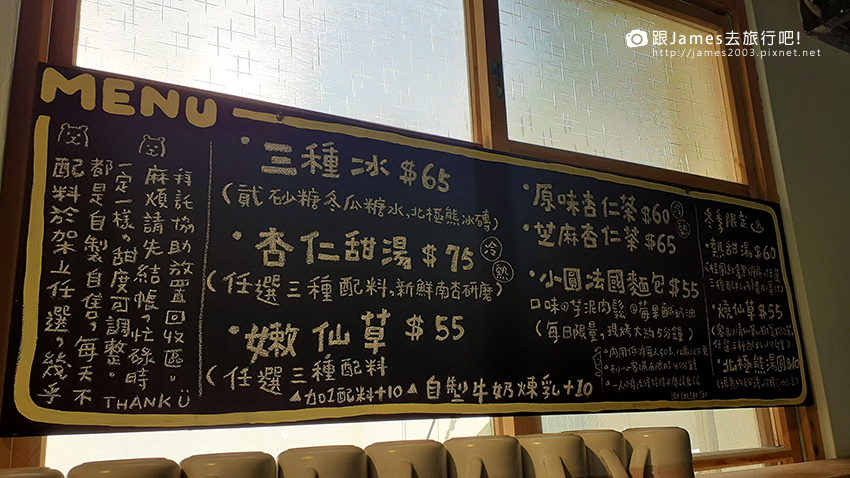 跟James去旅行吧!
http://james2003.pixnet.net
MENU
配料於架上任選,幾乎
都是自製自售,每天不
一定一樣,甜度可調整。
麻煩請先結帳,忙碌時
拜託協助放置回收區。
THANKÜ
·三種冰$65
(貳砂糖冬瓜糖水,北極熊冰磚)
·杏仁甜湯$75 冷 熱
(任選三種配料,新鮮南杏研磨)
·嫩仙草$55
(任選三種配料
▲加1配料+10 ▲自製牛奶煉乳+10
·原味杏仁茶$60 冷
·芝麻杏仁茶$65 熱
·小圓法國麵包$55
口味@芋泥肉鬆@莓果酪奶油
(每日限量,現烤大約5分鐘)
冬季限定
·熱甜湯$60
·燒仙草$55
·北極熊湯圓$10